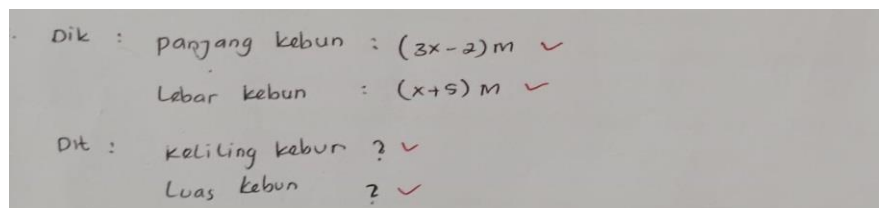 Dik : panjang kebun : (3x-2) m ✓
Lebar kebun : (x+5) m ✓
Dit : keliling kebun ? ✓
Luas kebun ? ✓